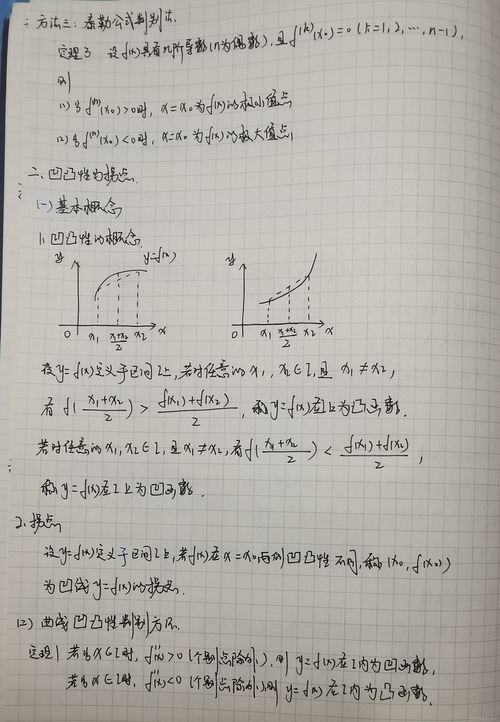 方法三：泰勒公式判别法.
定理3 设f(x)具有n阶导数(n为偶数), 且f⁽ᵏ⁾(x₀)=0 (k=1,2,…,n-1),
则
(1) 当f⁽ⁿ⁾(x₀)>0时, x=x₀为f(x)的极小值点
(2) 当f⁽ⁿ⁾(x₀)<0时, x=x₀为f(x)的极大值点
二、凹凸性与拐点.
(一) 基本概念
1. 凹凸性的概念.
y y=f(x) y
0 x₁ (x₁+x₂)/2 x₂ x 0 x₁ (x₁+x₂)/2 x₂ x
设y=f(x)定义于区间I上, 若对任意的x₁, x₂∈I, 且x₁≠x₂,
有f((x₁+x₂)/2) > (f(x₁)+f(x₂))/2, 称y=f(x)在I上为凸函数.
若对任意的x₁,x₂∈I, 且x₁≠x₂, 有f((x₁+x₂)/2) < (f(x₁)+f(x₂)/2,
称y=f(x)在I上为凹函数.
2. 拐点
设y=f(x)定义于区间I上, 若f(x)在x=x₀两侧凹凸性不同, 称(x₀, f(x₀))
为曲线y=f(x)的拐点.
(2) 曲线凹凸性判别方法.
定理1 若当x∈I时, f''(x)>0 (个别点除外), 则y=f(x)在I内为凹函数,
若当x∈I时, f''(x)<0 (个别点除外), 则y=f(x)在I内为凸函数.